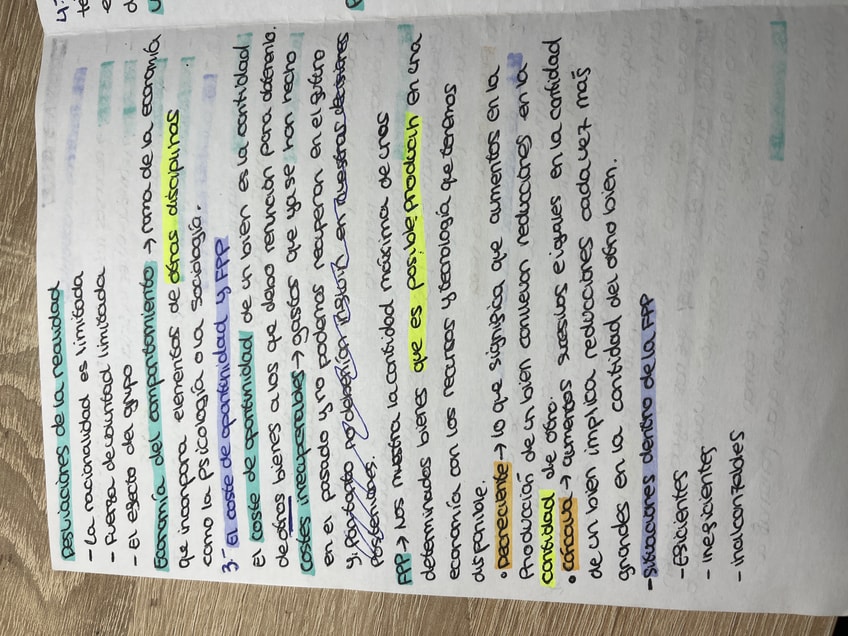 Desviaciones de la realidad
- La racionalidad es limitada
- Fuerza de voluntad limitada
- El efecto del grupo
Economía del comportamiento → rama de la economía
que incorpora elementos de otras disciplinas
como la psicología o la sociología.
3.- El coste de oportunidad y FPP
El coste de oportunidad de un bien es la cantidad
de otros bienes a los que debo renunciar para obtenerlo.
Costes irrecuperables → gastos que ya se han hecho
en el pasado y no podemos recuperar en el futuro
y, por tanto, no deberían influir en nuestras decisiones
posteriores.
FPP → Nos muestra la cantidad máxima de unos
determinados bienes que es posible producir en una
economía con los recursos y tecnología que tenemos
disponible.
• Decreciente → lo que significa que aumentos en la
Producción de un bien conllevan reducciones en la
cantidad de otro.
• Cóncava → aumentos sucesivos e iguales en la cantidad
de un bien implica reducciones cada vez más
grandes en la cantidad del otro bien.
- Situaciones dentro de la FPP
- Eficientes
- ineficientes
- inalcanzables
4.-